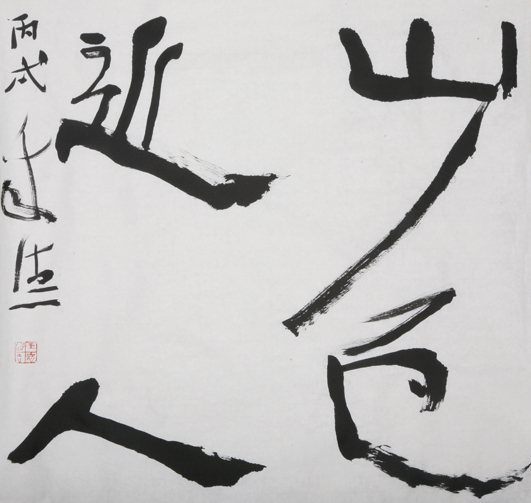 山色
近人
丙戌